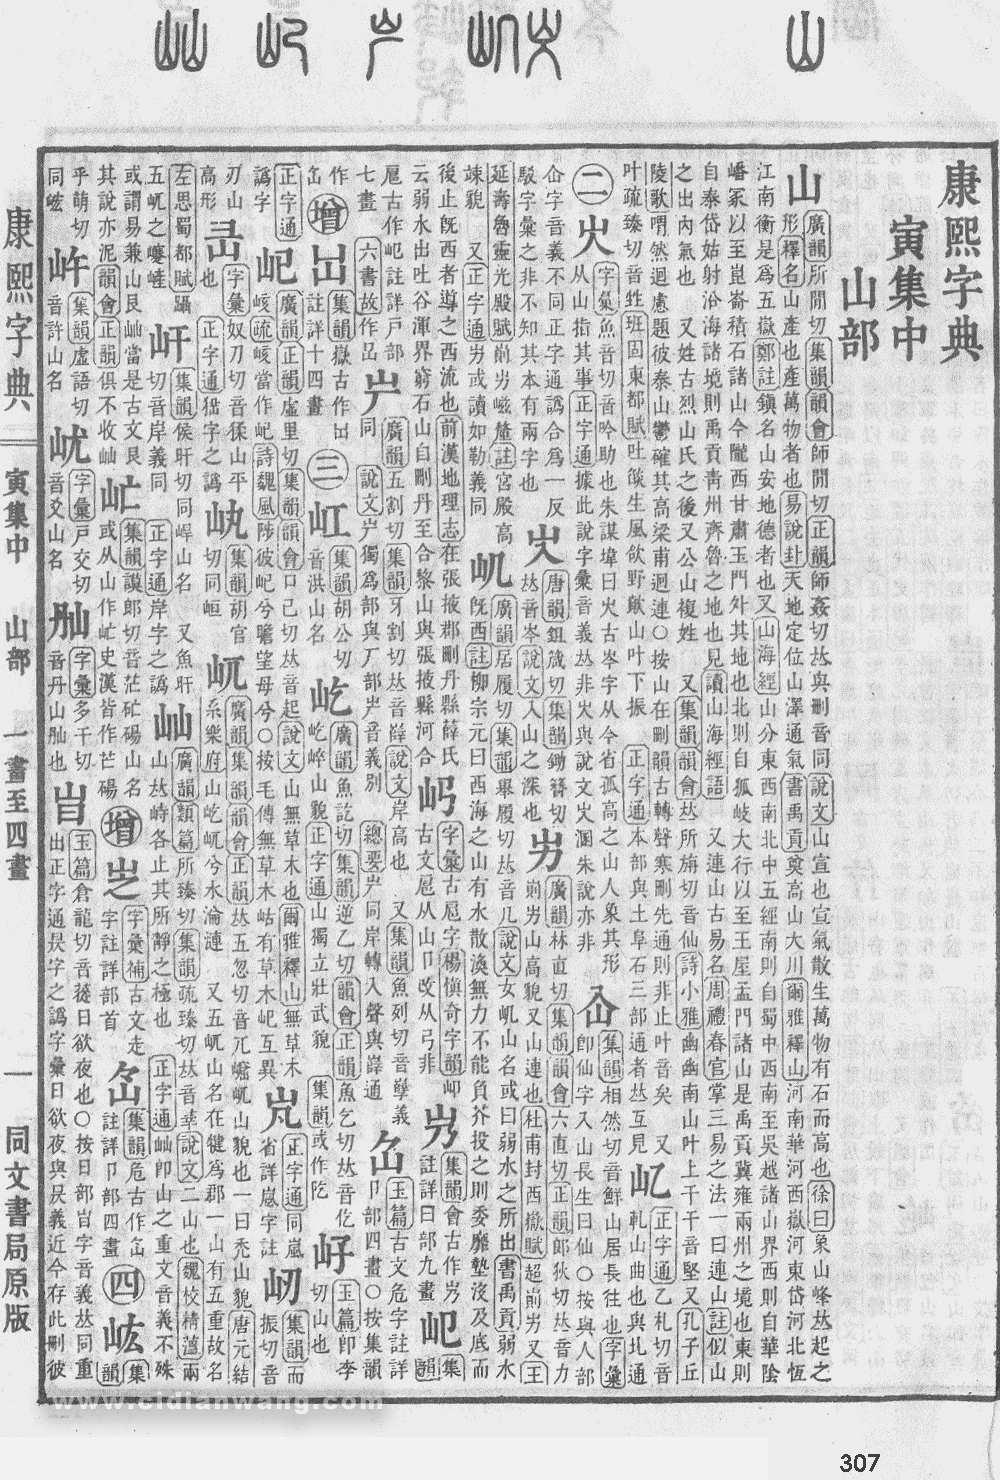 康熙字典
寅集中
山部
山 廣韻所閒切集韻韻會師閒切正韻師姦切𠀤與刪音同說文山宣也宣氣散生萬物有石而高也徐曰象山峰𠀤起之
形釋名山產也產萬物者也易說卦天地定位山澤通氣書禹貢奠高山大川爾雅釋山河南華河西嶽河東岱河北恆
江南衡是爲五嶽鄭註鎭名山安地德者也又山海經山分東西南北中五經南則自蜀中西南至吳越諸山界西則自華陰
嶓冢以至崑崙積石諸山今隴西甘肅玉門外其地也北則自狐岐大行以至王屋孟門諸山是禹貢冀雍兩州之境也東則
自泰岱姑射沿海諸境則禹貢靑州齊魯之地也見讀山海經語 又連山古易名周禮春官掌三易之法一曰連山註似山
之出內氣也 又姓古烈山氏之後又公山複姓 又集韻韻會𠀤所旃切音仙詩小雅幽幽南山叶上干干音堅又孔子丘
陵歌喟然迴慮題彼泰山鬱確其高梁甫迴連○按山在刪韻古轉聲寒刪先通則非止叶音矣 又
叶疏臻切音甡班固東都賦吐燄生風欨野歕山叶下振 正字通本部與土阜石三部通者𠀤互見
乢 正字通乙札切音
軋山曲也與圠通
二
字彙魚音切音吟助也朱謀㙔曰火古岑字从仐省孤高之山人象其形
从山指其事正字通據此說字彙音義𠀤非火與說文㞥溷朱說亦非
仚 集韻相然切音鮮山居長往也字彙
卽仙字入山長生曰仙○按與人部
仚字音義不同正字通譌合爲一反
駁字彙之非不知其本有兩字也
㞥 唐韻鉏箴切集韻鋤簪切
𠀤音岑說文入山之深也
屴 廣韻林直切集韻韻會六直切正韻郎狄切𠀤音力
崱屴山高貌又山連也杜甫封西嶽賦超崱屴又王
延壽魯靈光殿賦崱屴嵫釐註宮殿高
竦貌 又正字通屴或讀如勒義同
㞦 廣韻居履切集韻舉履切𠀤音几說文女㞦山名或曰弱水之所出書禹貢弱水
旣西註柳宗元曰西海之山有水散渙無力不能負芥投之則委靡墊沒及底而
後止旣西者導之西流也前漢地理志在張掖郡刪丹縣薛氏
云弱水出吐谷渾界窮石山自刪丹至合黎山與張掖縣河合
字彙古戹字楊愼奇字韻
古文戹从山卩攺从弓非
集韻會古作屶
註詳日部九畫
屺 集韻
戹古作屺註詳戶部
七畫 六書故作嵒
屵 廣韻五割切集韻牙割切𠀤音嶭說文岸高也 又集韻魚列切音孽義
同 說文屵獨爲部與厂部屵音義別 總要屵同岸轉入聲與嶭通
玉篇古文危字註詳
卩部四畫○按集韻
作
屳
增 集韻嶽古作
註詳十四畫
三
屸 集韻胡公切
音洪山名
屹 廣韻魚訖切集韻逆乙切韻會正韻魚乞切𠀤音仡
屹崪山貌正字通山獨立壯武貌 集韻或作阣
玉篇卽李
切山也
正字通
譌字
屺 廣韻正韻虛里切集韻韻會口己切𠀤音起說文山無草木也爾雅釋山無草木
峐疏峐當作屺詩魏風陟彼屺兮瞻望母兮○按毛傳無草木岵有草木屺互異
正字通同嵐
省詳嵐字註
屻 集韻而
振切音
刃山
高形
字彙奴刀切音猱山平
也 正字通猺字之譌
集韻胡官
切同峘
屼 廣韻集韻韻會正韻𠀤五忽切音兀崛屼山貌也一曰禿山貌唐元結
系樂府山屹屼兮水淪漣 又五屼山名在犍爲郡一山有五重故名
左思蜀都賦躡
五屼之蹇嵼
屽 集韻侯旰切同㟁山名 又魚旰
切音岸義同 正字通岸字之譌
屾 廣韻類篇所臻切集韻疏臻切𠀤音莘說文二山也魏校精薀兩
山𠀤峙各止其所靜之極也 正字通屾卽山之重文音義不殊
或謂易兼山艮屾當是古文艮
其說亦泥韻會正韻俱不收屾
集韻謨郎切音茫硭碭山名
或从山作㟐史漢皆作芒碭
增
字彙補古文走
字註詳部首
集韻危古作
註詳卩部四畫
四
峵 集韻
乎萌切
同峵
集韻虛語切
音許山名
字彙戶交切
音爻山名
字彙多干切
音丹山也
玉篇倉龍切音蓯日欲夜也○按日部旹字音義𠀤同重
出正字通昃字之譌字彙日欲夜與昃義近今存此刪彼
康熙字典 寅集中 山部 一畫至四畫 一 同文書局原版
www.cidianwang.com
307